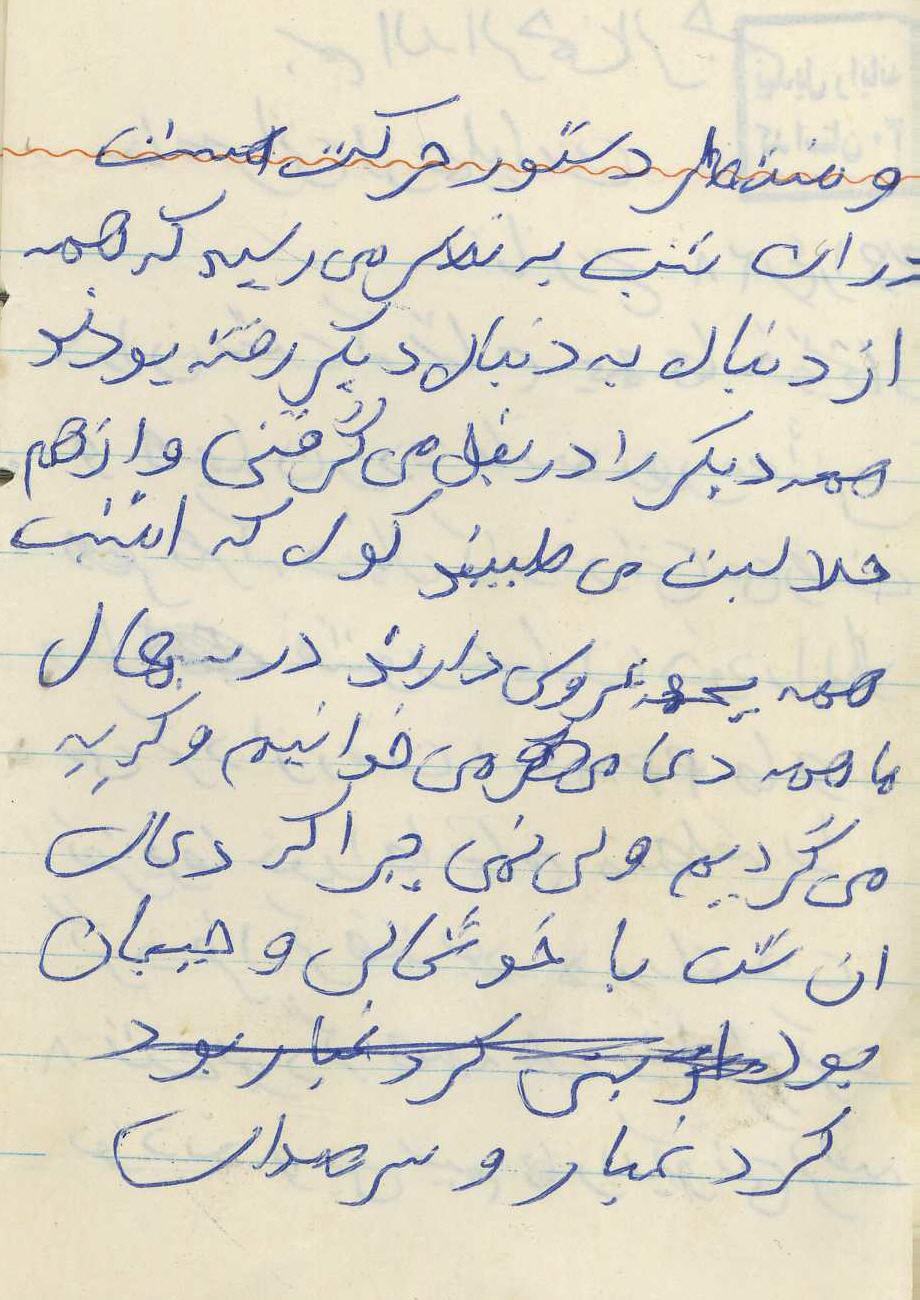 و منتظر دستور حرکت است
در ان شب به نظر می رسید که همه
از دنبال به دنبال دیگر رفته بودند
همه دیگر را در بغل می گرفتی و از هم
حلالیت می طلبیند گول که امشب
همه عروسی دارند در به حال
ما همه دعا می خوانیم و گریه
می کردیم ولی نمی چرا اگر دعای
ان شب با خوشحالی و هیجان
بود بس گرد غبار بود
گرد غبار و سر صدای